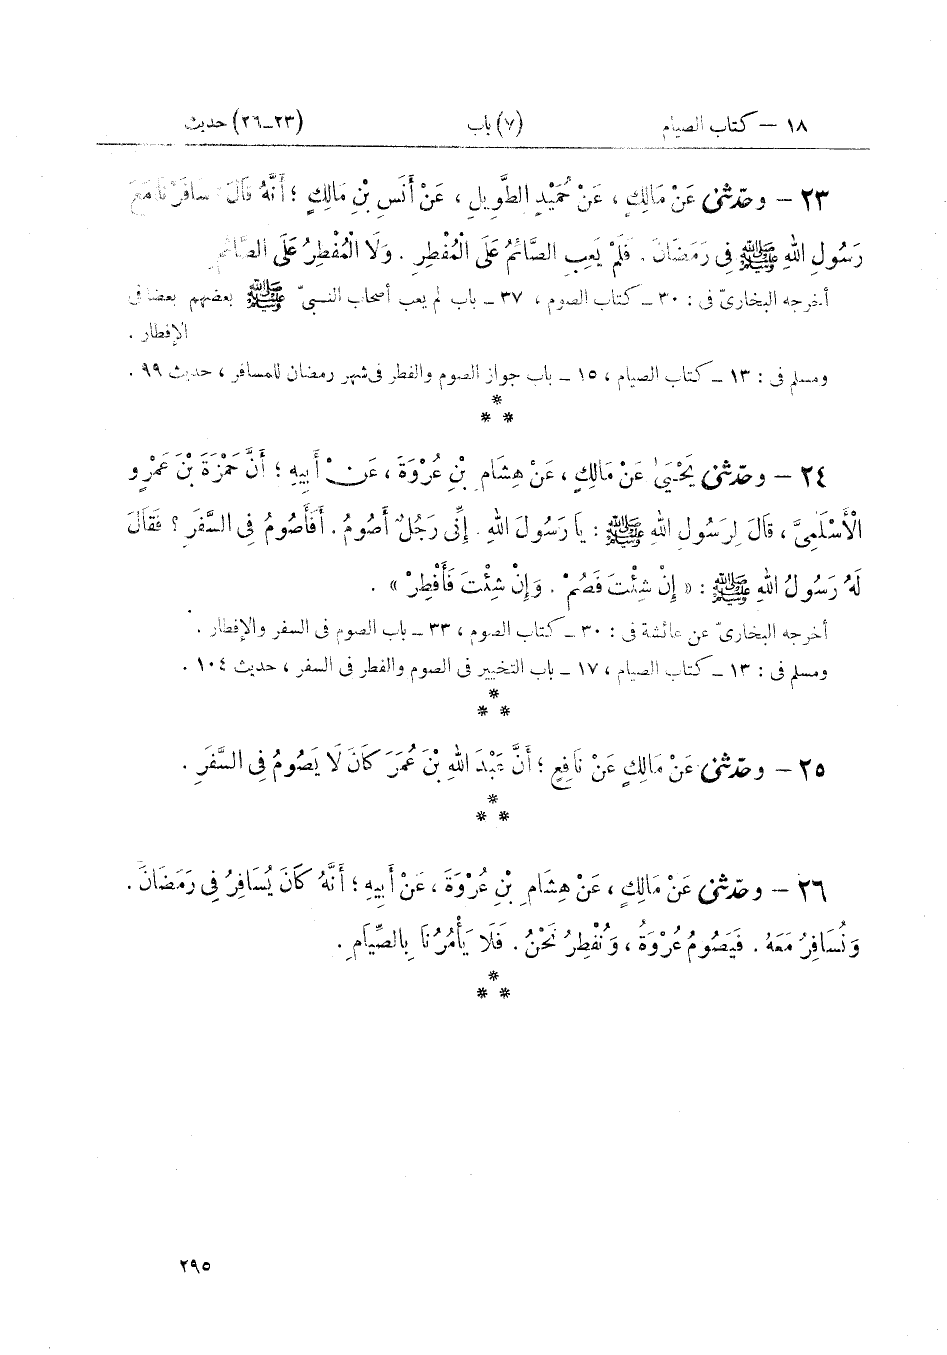 ١٨ – كتاب الصيام (٧) باب (٢٣–٢٦) حديث
٢٣ – وحدّثنى عَنْ مَالِكٍ ، عَنْ حُمَيْدٍ الطَّوِيلِ ، عَنْ أَنَسِ بْنِ مَالِكٍ ؛ أَنَّهُ قَالَ : سَافَرْنَا مَعَ
رَسُولِ اللهِ ﷺ فِى رَمَضَانَ . فَلَمْ يَعِبِ الصَّائمُ عَلَى الْمُفْطِرِ . وَلَا الْمُفْطِرُ عَلَى الصَّائمِ .
أخرجه البخارىّ فى : ٣٠ – كتاب الصوم ، ٣٧ – باب لم يعب أصحاب النبىّ ﷺ بعضهم بعضا فى
الإفطار .
ومسلم فى : ١٣ – كتاب الصيام ، ١٥ – باب جواز الصوم والفطر فى شهر رمضان للمسافر ، حديث ٩٩ .
*
* *
٢٤ – وحدّثنى يَحْيَىٰ عَنْ مَالِكٍ ، عَنْ هِشَامِ بْنِ عُرْوَةَ ، عَنْ أَبِيهِ ؛ أَنَّ حَمْزَةَ بْنَ عَمْرٍو
الْأَسْلَمِىَّ ، قَالَ لِرَسُولِ اللهِ ﷺ : يَا رَسُولَ اللهِ . إِنِّى رَجُلٌ أَصُومُ . أَفَأَصُومُ فِى السَّفَرِ ؟ فَقَالَ
لَهُ رَسُولُ اللهِ ﷺ : « إِنْ شِئْتَ فَصُمْ . وَإِنْ شِئْتَ فَأَفْطِرْ » .
أخرجه البخارىّ عن عائشة فى : ٣٠ – كتاب الصوم ، ٣٣ – باب الصوم فى السفر والإفطار .
ومسلم فى : ١٣ – كتاب الصيام ، ١٧ – باب التخيير فى الصوم والفطر فى السفر ، حديث ١٠٤ .
*
* *
٢٥ – وحدّثنى عَنْ مَالِكٍ عَنْ نَافِعٍ ؛ أَنَّ عَبْدَ اللهِ بْنَ عُمَرَ كَانَ لَا يَصُومُ فِى السَّفَرِ .
*
* *
٢٦ – وحدّثنى عَنْ مَالِكٍ ، عَنْ هِشَامِ بْنِ عُرْوَةَ ، عَنْ أَبِيهِ ؛ أَنَّهُ كَانَ يُسَافِرُ فِى رَمَضَانَ .
وَنُسَافِرُ مَعَهُ . فَيَصُومُ عُرْوَةُ ، وَنُفْطِرُ نَحْنُ . فَلَا يَأْمُرُنَا بِالصِّيَامِ .
*
* *
٢٩٥